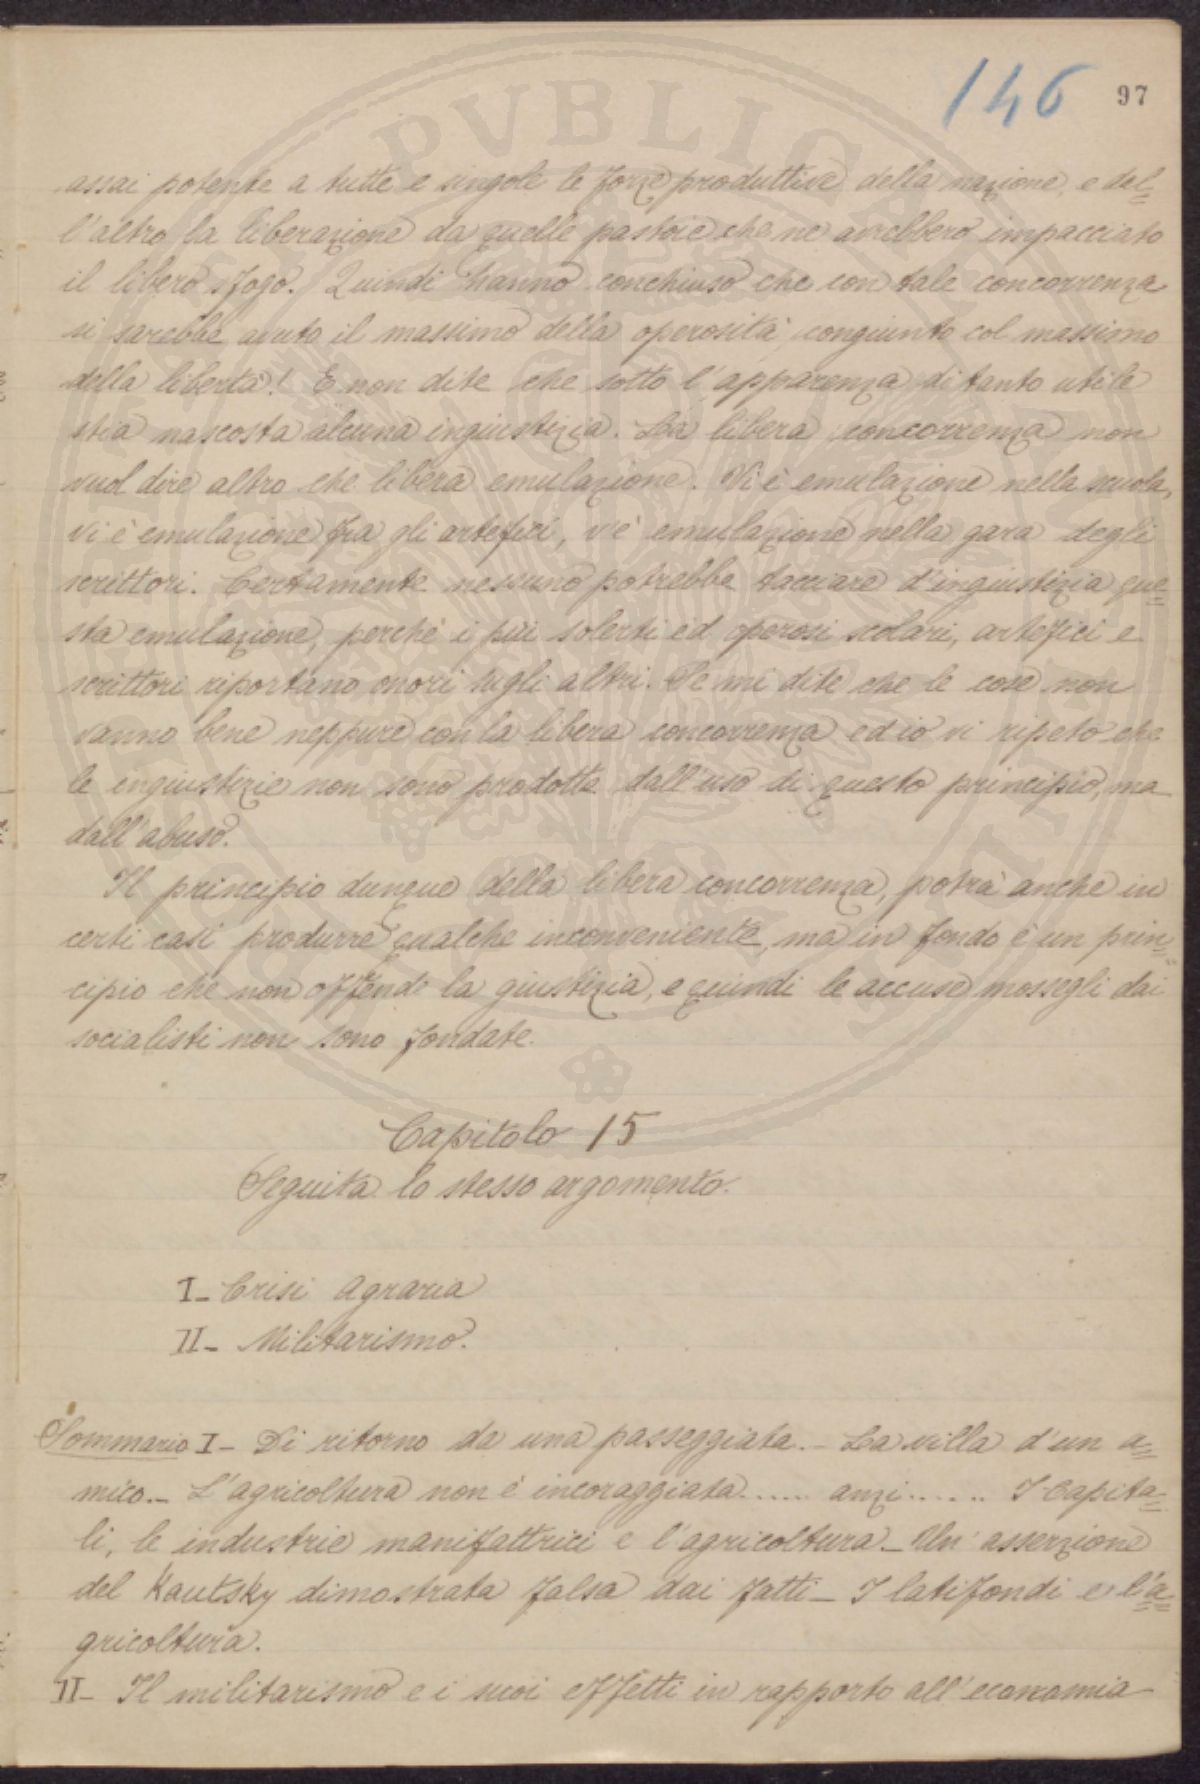 146 97
assai potente a tutte e singole le forze produttive della nazione, e dal=
l'altro la liberazione da quelle pastoie che ne avrebbero impacciato
il libero sfogo. Quindi hanno conchiuso che con tale concorrenza
si sarebbe avuto il massimo della operosità, congiunto col massimo
della libertà! E non dite che sotto l'apparenza di tanto utile
stia nascosta alcuna ingiustizia. La libera concorrenza non
vuol dire altro che libera emulazione. Vi è emulazione nella scuola,
vi è emulazione fra gli artefici, v'è emulazione nella gara degli
scrittori. Certamente nessuno potrebbe tacciare d'ingiustizia que=
sta emulazione, perchè i più solerti ed operosi scolari, artefici e
scrittori riportano onori sugli altri. Se mi dite che le cose non
vanno bene neppure con la libera concorrenza ed io vi ripeto che
le ingiustizie non sono prodotte dall'uso di questo principio, ma
dall'abuso.
Il principio dunque della libera concorrenza, potrà anche in
certi casi produrre qualche inconveniente, ma in fondo è un prin=
cipio che non offende la giustizia, e quindi le accuse mossegli dai
socialisti non sono fondate.
Capitolo 15
Seguita lo stesso argomento.
I- Crisi Agraria
II- Militarismo.
Sommario I- Di ritorno da una passeggiata.- La villa d'un a=
mico.- L'agricoltura non è incoraggiata...... anzi...... I Capita=
li, le industrie manifattrici e l'agricoltura- Un'asserzione
del Kautsky dimostrata falsa dai fatti- I latifondi e l'a=
gricoltura.
II- Il militarismo e i suoi effetti in rapporto all'economia
PVBLICA